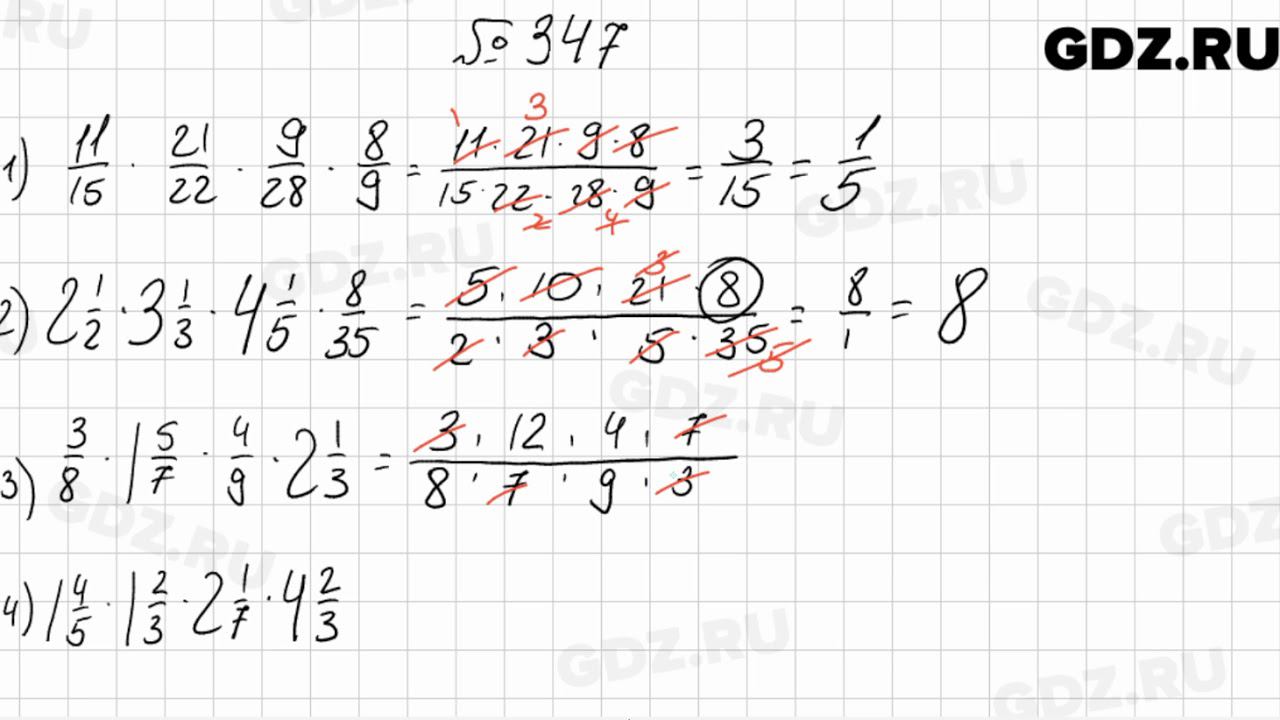 № 347
GDZ.RU
1) 11/15 · 21/22 · 9/28 · 8/9 = (11 · 21 · 9 · 8)/(15 · 22 · 28 · 9) = 3/15 = 1/5
1 3
2 4
2) 2 1/2 · 3 1/3 · 4 1/5 · 8/35 = (5 · 10 · 21 · 8)/(2 · 3 · 5 · 35) = 8/1 = 8
3
5
3) 3/8 · 1 5/7 · 4/9 · 2 1/3 = (3 · 12 · 4 · 7)/(8 · 7 · 9 · 3)
4) 1 4/5 · 1 2/3 · 2 1/7 · 4 2/3